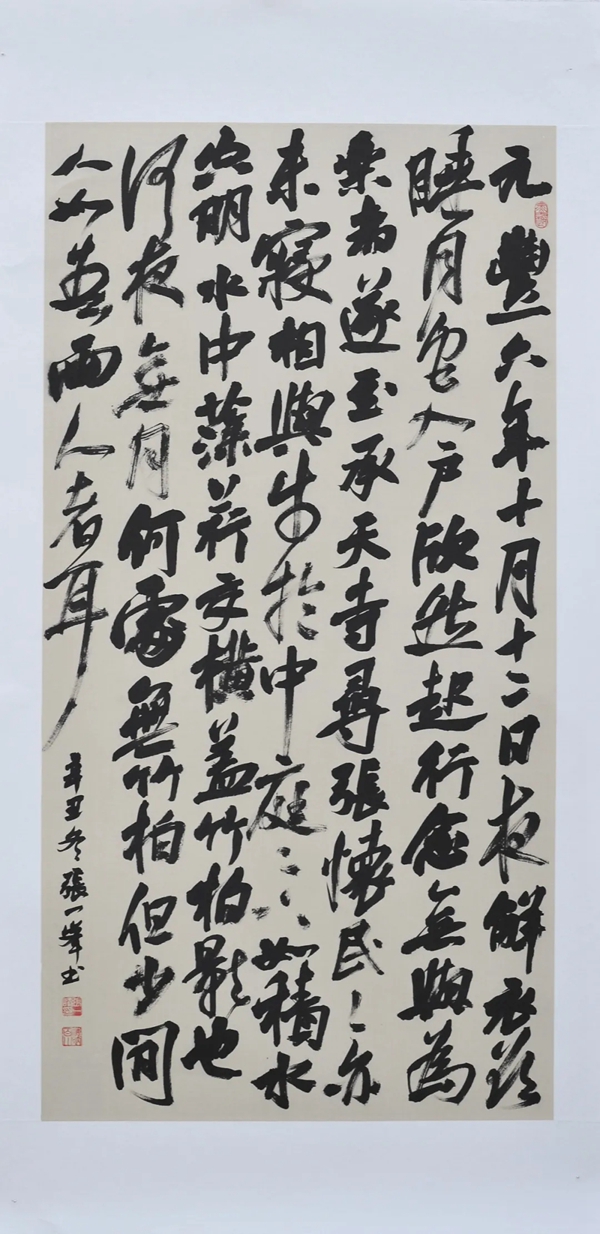 元豐六年十月十二日夜解衣欲
睡月色入戶欣然起行念無與為
樂者遂至承天寺尋張懷民〻亦
未寢相與步於中庭〻下如積水
空明水中藻荇交橫蓋竹柏影也
何夜無月何處無竹柏但少閒
人如吾兩人者耳
辛丑冬張一峯書